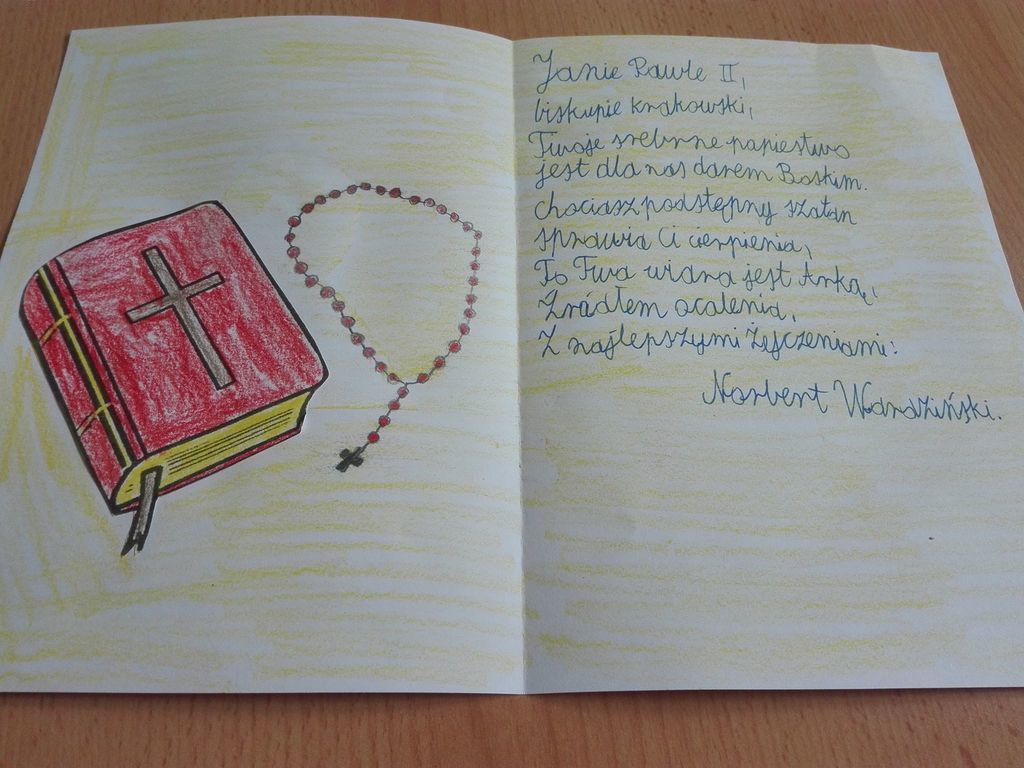 Janie Pawle II,
biskupie krakowski,
Twoje srebrne papiestwo
jest dla nas darem Boskim.
chociasz podstępny szatan
sprawia Ci cierpienia,
To Twa wiara jest Arką,
Źródłem ocalenia.
Z najlepszymi życzeniami:
Norbert Wardziński.